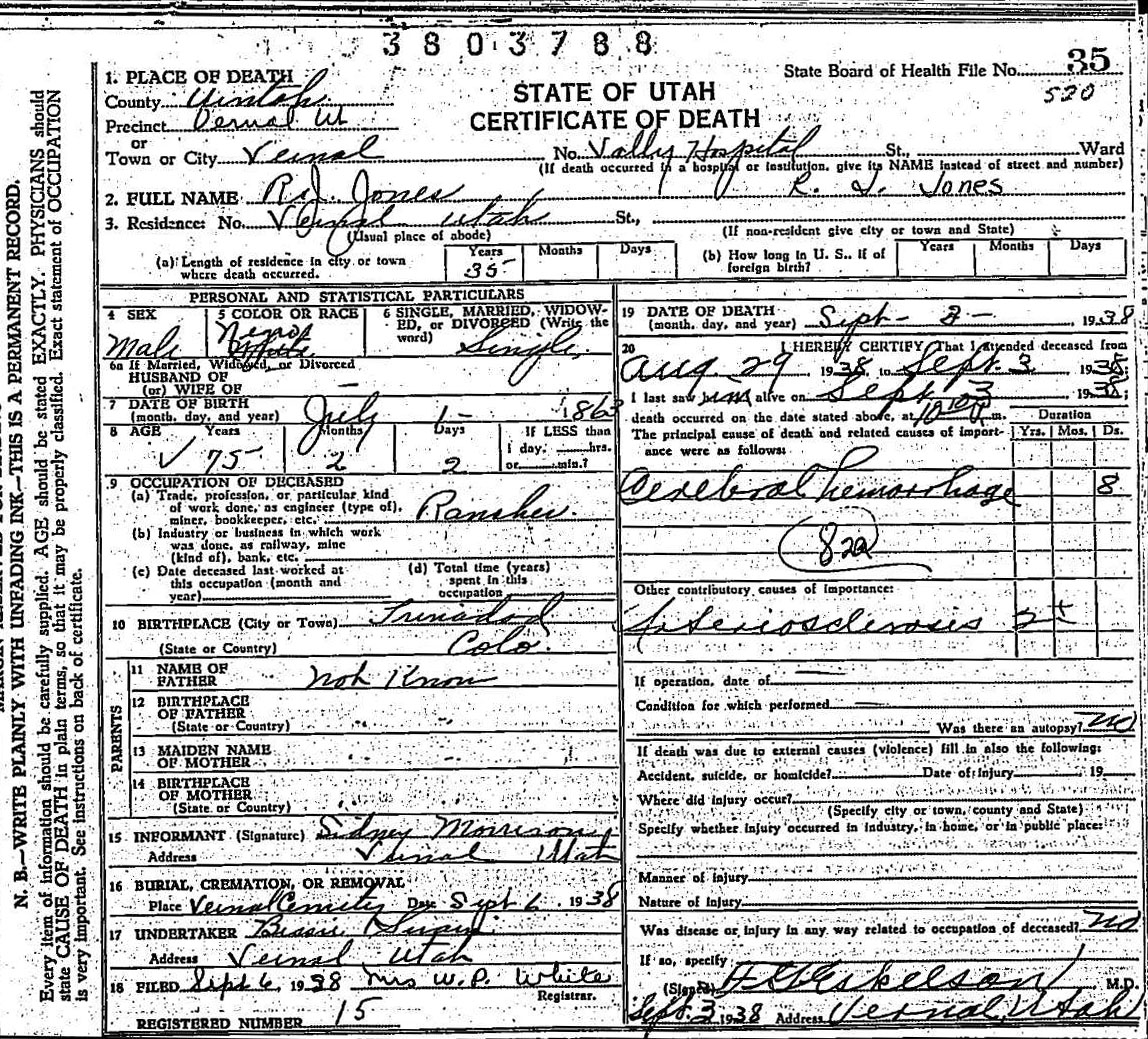 3803788
State Board of Health File No. 35
520
STATE OF UTAH
CERTIFICATE OF DEATH
1. PLACE OF DEATH
County Uintah
Precinct Vernal Ut
or
Town or City Vernal No. Vally Hospital St., Ward
(If death occurred in a hospital or institution, give its NAME instead of street and number)
2. FULL NAME R. J. Jones R. J. Jones
3. Residence: No. Vernal Utah St.,
(Usual place of abode) (If non-resident give city or town and State)
(a) Length of residence in city or town where death occurred. Years 35 Months Days
(b) How long in U. S., if of foreign birth? Years Months Days
PERSONAL AND STATISTICAL PARTICULARS
4 SEX
Male
5 COLOR OR RACE
Negro
White
6 SINGLE, MARRIED, WIDOWED, or DIVORCED (Write the word)
Single
6a If Married, Widowed, or Divorced
HUSBAND OF
(or) WIFE OF —
7 DATE OF BIRTH
(month, day, and year) July 1- 1863
8 AGE Years Months Days If LESS than
1 day, hrs.
or min.?
✓ 75 2 2
9 OCCUPATION OF DECEASED
(a) Trade, profession, or particular kind
of work done, as engineer (type of),
miner, bookkeeper, etc. Rancher
(b) Industry or business in which work
was done, as railway, mine
(kind of), bank, etc.
(c) Date deceased last worked at
this occupation (month and
year)
(d) Total time (years)
spent in this
occupation
10 BIRTHPLACE (City or Town) Trinadad
(State or Country) Colo.
PARENTS
11 NAME OF
FATHER Not Know
12 BIRTHPLACE
OF FATHER
(State or Country)
13 MAIDEN NAME
OF MOTHER
14 BIRTHPLACE
OF MOTHER
(State or Country)
15 INFORMANT (Signature) Sidney Morrison
Address Vernal Utah
16 BURIAL, CREMATION, OR REMOVAL
Place Vernal Cemetery Date Sept 6 1938
17 UNDERTAKER
Address Vernal Utah
18 FILED Sept 6, 1938 Mrs W. P. White
Registrar.
REGISTERED NUMBER 15
19 DATE OF DEATH
(month, day, and year) Sept - 3 - 1938
20 I HEREBY CERTIFY That I attended deceased from
Aug. 29 1938, to Sept. 3 1938
I last saw him alive on Sept 3 1938;
death occurred on the date stated above, at m.
The principal cause of death and related causes of importance were as follows: Duration
Yrs. Mos. Ds.
Cerebral hemorrhage 8
82a
Other contributory causes of importance:
Arteriosclerosis 2+
If operation, date of —
Condition for which performed —
Was there an autopsy? No
If death was due to external causes (violence) fill in also the following:
Accident, suicide, or homicide? Date of injury 19
Where did injury occur?
(Specify city or town, county and State)
Specify whether injury occurred in industry, in home, or in public place:
Manner of injury
Nature of injury
Was disease or injury in any way related to occupation of deceased? No
If so, specify
(Signed) Eskelson M.D.
Sept. 3 1938 Address Vernal, Utah
N. B.—WRITE PLAINLY WITH UNFADING INK—THIS IS A PERMANENT RECORD.
Every item of information should be carefully supplied. AGE should be stated EXACTLY. PHYSICIANS should
state CAUSE OF DEATH in plain terms, so that it may be properly classified. Exact statement of OCCUPATION
is very important. See instructions on back of certificate.